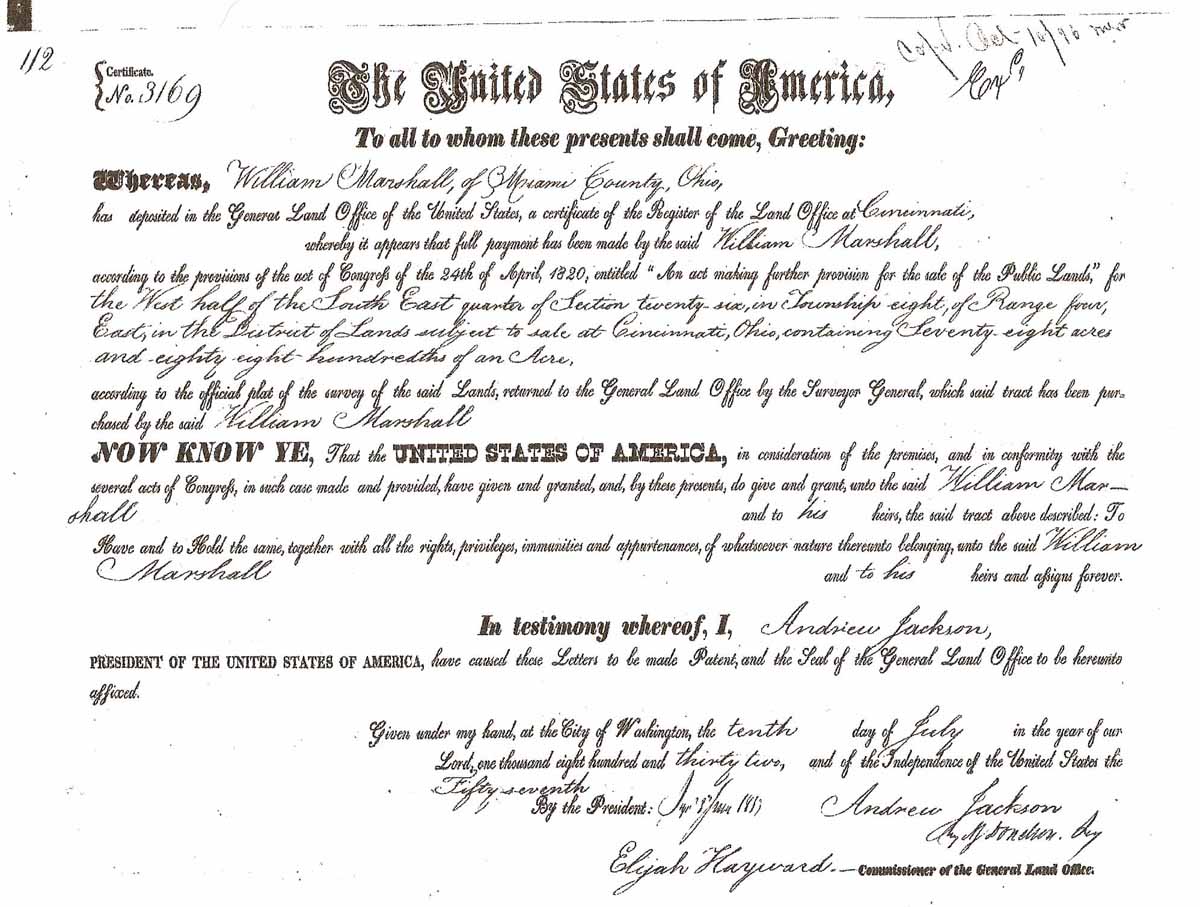 112
Certificate.
No. 3169
The United States of America,
To all to whom these presents shall come, Greeting:
Whereas, William Marshall, of Miami County, Ohio,
has deposited in the General Land Office of the United States, a certificate of the Register of the Land Office at Cincinnati,
whereby it appears that full payment has been made by the said William Marshall,
according to the provisions of the act of Congress of the 24th of April, 1820, entitled "An act making further provision for the sale of the Public Lands," for
the West half of the South East quarter of Section twenty-six, in Township eight, of Range four,
East, in the District of Lands subject to sale at Cincinnati, Ohio, containing Seventy-eight acres
and eighty eight hundredths of an Acre,
according to the official plat of the survey of the said Lands, returned to the General Land Office by the Surveyor General, which said tract has been pur-
chased by the said William Marshall
NOW KNOW YE, That the UNITED STATES OF AMERICA, in consideration of the premises, and in conformity with the
several acts of Congress, in such case made and provided, have given and granted, and, by these presents, do give and grant, unto the said William Mar-
shall and to his heirs, the said tract above described: To
Have and to Hold the same, together with all the rights, privileges, immunities and appurtenances, of whatsoever nature thereunto belonging, unto the said William
Marshall and to his heirs and assigns forever.
In testimony whereof, I, Andrew Jackson,
PRESIDENT OF THE UNITED STATES OF AMERICA, have caused these Letters to be made Patent, and the Seal of the General Land Office to be hereunto
affixed.
Given under my hand, at the City of Washington, the tenth day of July in the year of our
Lord, one thousand eight hundred and thirty two, and of the Independence of the United States the
Fifty seventh
By the President: Andrew Jackson
By AJ Donelson. Secy
Elijah Hayward.— Commissioner of the General Land Office.